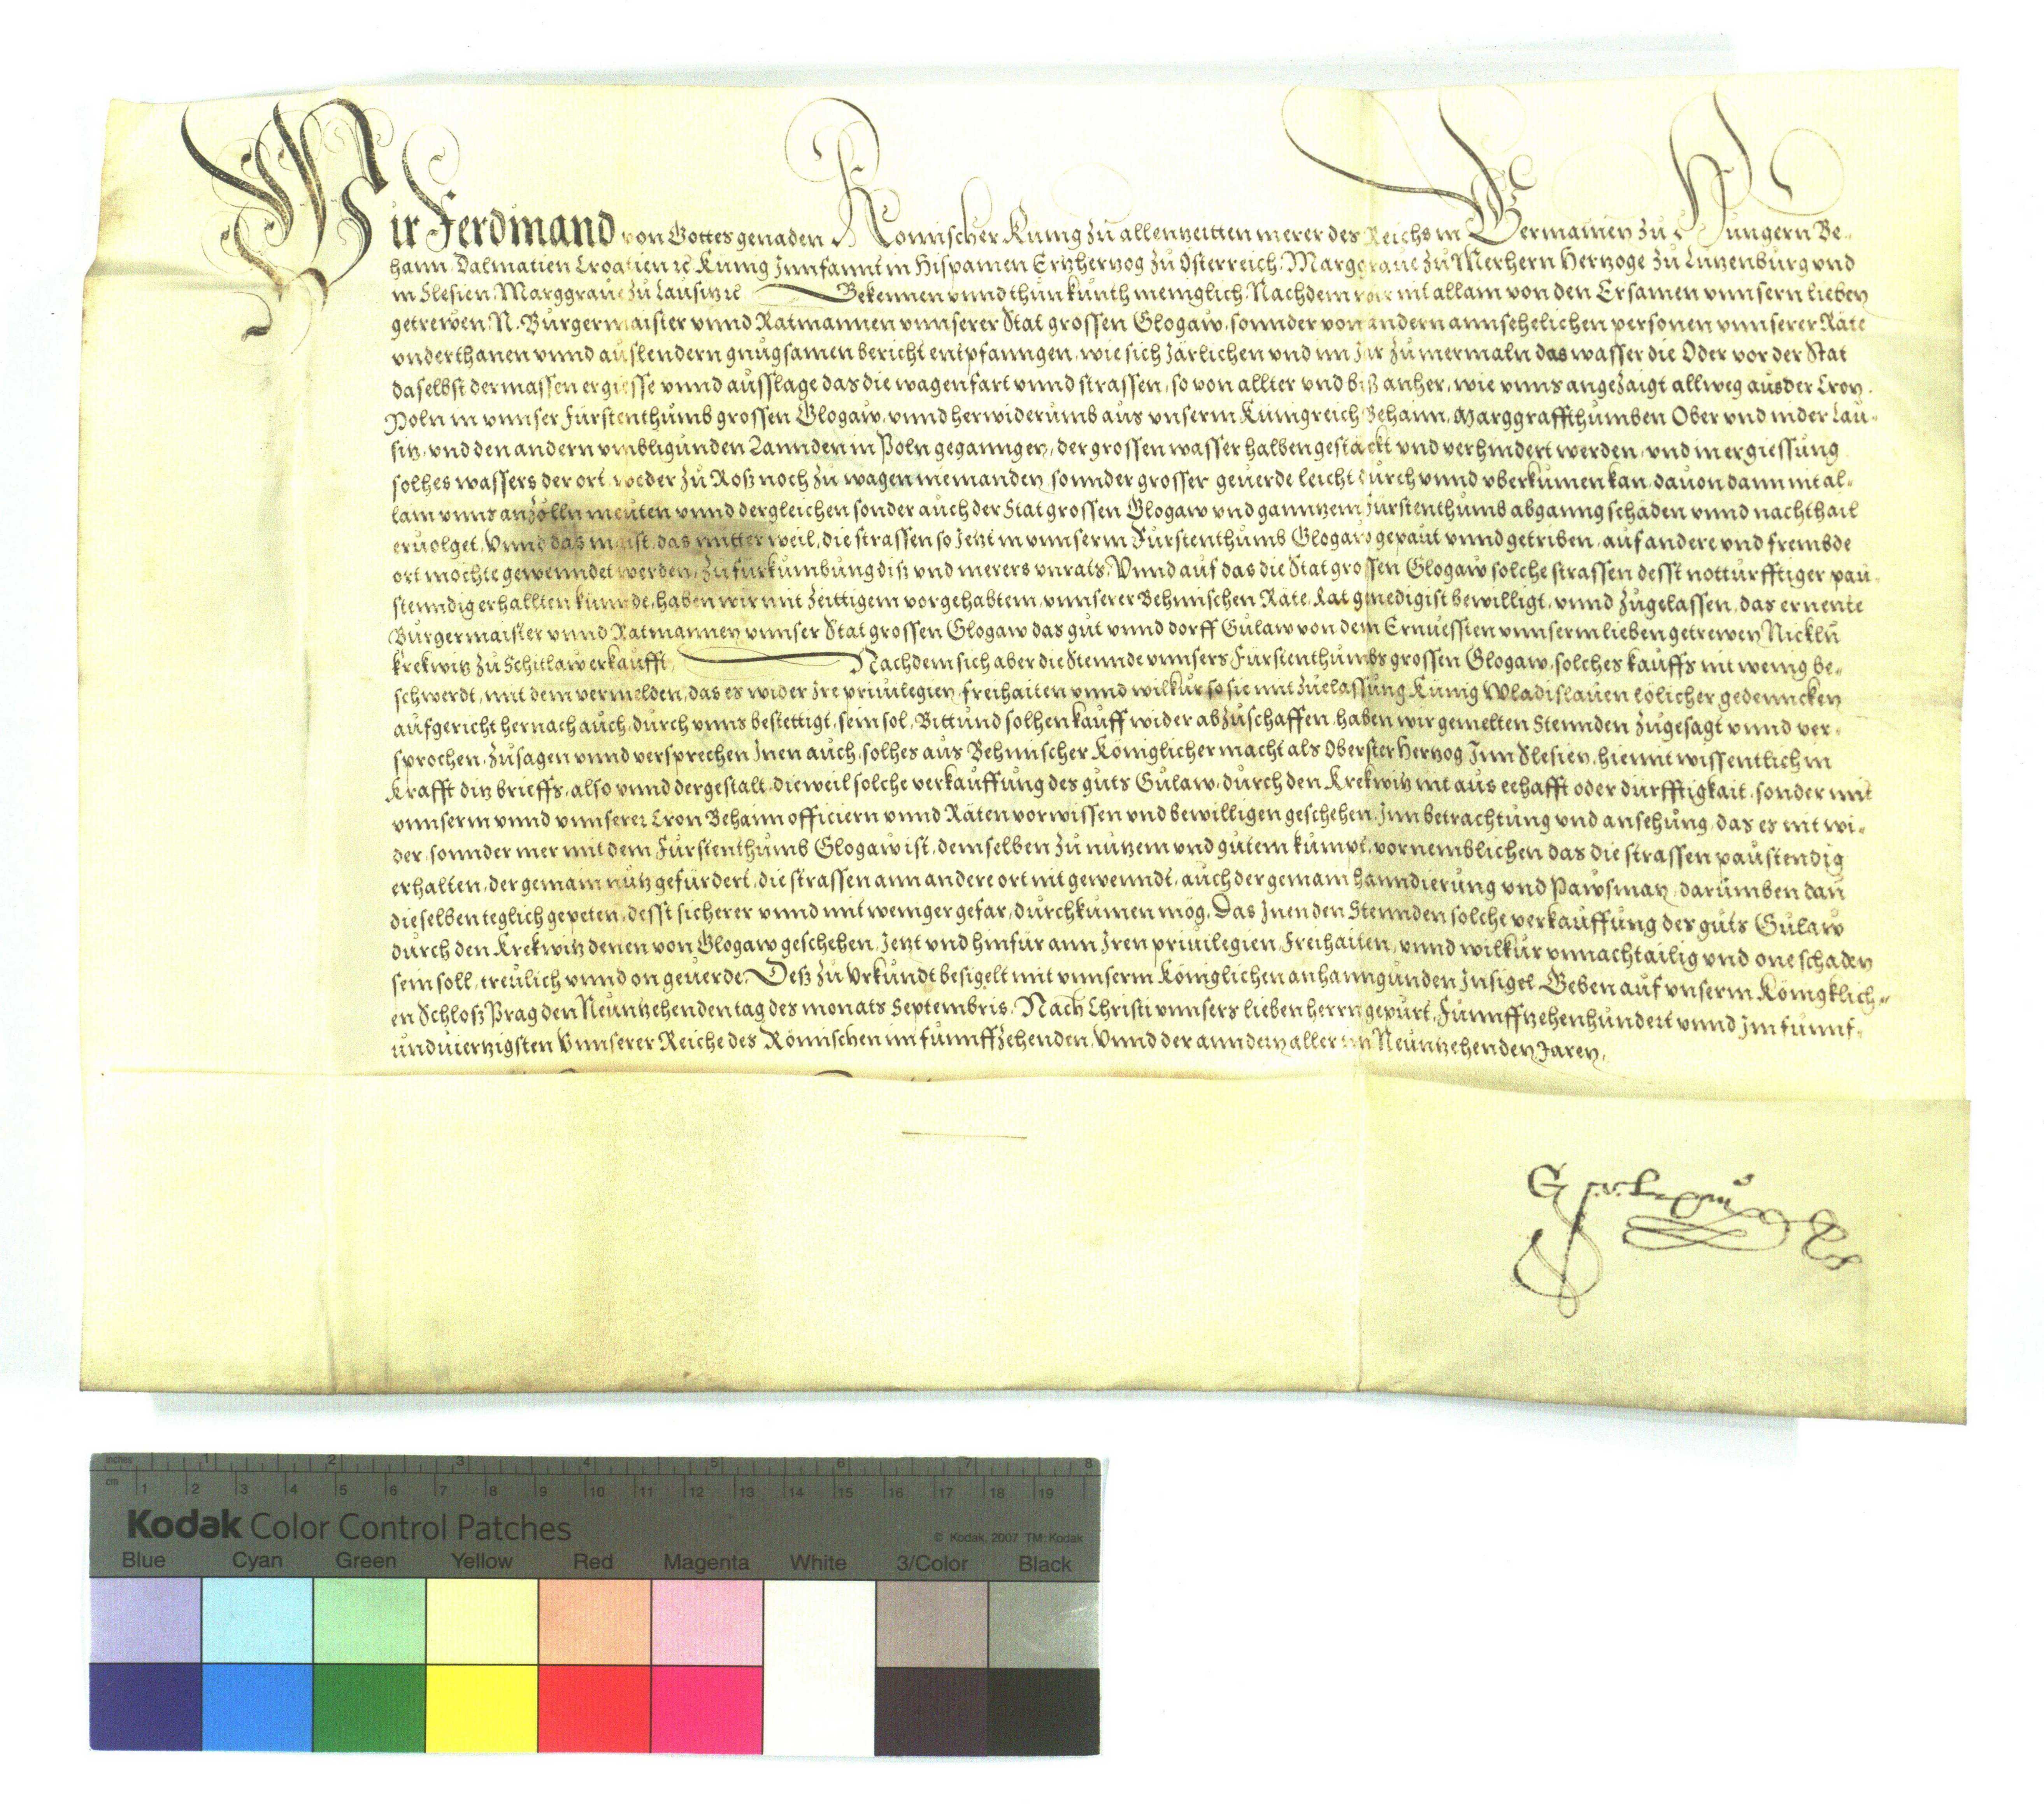 Wir Ferdinand von Gottes genaden Romischer Kunig zu allenntzeitten merer des Reichs in Germanien zu Hungern Be-
haim Dalmatien Croatien ꝛc Kunig Innfannt in Hispanien Ertzhertzog zu Osterreich Marggraue zu Merhern Hertzoge zu Lutzenburg vnd
in Slesien Marggraue zu Lausitz ꝛc Bekennen vnnd thun kunth meniglich Nachdem wir nit allain von den Ersamen vnnsern lieben
getrewen N. Burgermaister vnnd Ratmannen vnnserer Stat grossen Glogaw, sonnder von andern annsehelichen personen vnnserer Räte
vnderthanen vnnd auslendern gnugsamen bericht entpfanngen, wie sich Järlichen vnd im Jar zu mermaln das wasser die Oder vor der Stat
daselbst dermassen ergiesse vnnd ausslage das die wagenfart vnnd strassen, so von allter vnd biß anher, wie vnns angezaigt allweg aus der Cron
Poln in vnnser Furstenthumb grossen Glogaw, vnnd herwiderumb aus vnserm Kunigreich Behaim, Marggraffthumben Ober vnd nider Lau-
sitz, vnd den andern vmbligunden Lannden in Poln geganngen, der grossen wasser halben gestackt vnd verhindert werden, vnd in ergiessung
solhes wassers der ort weder zu Roß noch zu wagen niemanden sonnder grosser geuerde leicht durch vnnd vberkumen kan, dauon dann nit al-
lain vnns an Zölln meuten vnnd dergleichen sonder auch der Stat grossen Glogaw vnd ganntzem Furstenthumb abganng schaden vnnd nachthail
eruolget, Vnnd das maist, das mitterweil, die strassen so Jetzt in vnnserm Furstenthumb Glogaw gepaut vnnd getriben, auf andere vnd frembde
ort mochte gewenndet werden, Zu furkumbung diß vnd merers vnrats, Vnnd auf das die Stat grossen Glogaw solche strassen desst notturfftiger pau-
stenndig erhallten kunde, haben wir mit zeittigem vorgehabtem, vnnserer Behmischen Räte, Rat gnedigist bewilligt, vnnd zugelassen, das ernente
Burgermaister vnnd Ratmannen vnnser Stat grossen Glogaw das gut vnnd dorff Gulaw von dem Ernuessten vnnserm lieben getrewen Nicklü
krekwitz zu Schitlaw erkaufft, Nachdem sich aber die Stennde vnnsers Furstenthumbs grossen Glogaw, solches kauffs nit wenig be-
schwerdt, mit dem vermelden, das es wider Jre priuilegien, freihaiten vnnd wilkur so sie mit zuelassung Kunig Wladislauen lölicher gedenncken
aufgericht hernach auch, durch vnns bestettigt, sein sol, Bittund solhen kauff wider abzuschaffen, haben wir gemelten Stennden zugesagt vnnd ver-
sprochen, Zusagen vnnd versprechen Jnen auch, solhes aus Behmischer Königlicher macht als Oberster Hertzog Jnn Slesien, hiemit wissentlich in
Krafft ditz brieffs, also vnnd dergestalt, dieweil solche verkauffung des guts Gulaw, durch den Krekwitz nit aus eehafft oder durfftigkait, sonder mit
vnnserm vnnd vnnserer Cron Behaim officiern vnnd Räten vorwissen vnd bewilligen geschehen, Jnn betrachtung vnd ansehung, das es nit wi-
der, sonnder mer mit dem Furstenthumb Glogaw ist, demselben zu nutzem vnd gutem kumpt, vornemblichen das die strassen paustendig
erhalten, der gemain nutz gefurdert, die strassen ann andere ort nit gewenndt, auch der gemain hanndierung vnd Pawsman, darumben dan
dieselben teglich gepeten, desst sicherer vnnd mit weniger gefar, durchkumen mög, Das Jnen den Stennden solche verkauffung der guts Gulaw
durch den Krekwitz denen von Glogaw geschehen, Jetzt vnd hinfür ann Jren priuilegien, Freihaiten, vnnd wilkur vnnachtailig vnd one schaden
sein soll, treulich vnnd on geuerde, Deß zu Vrkundt besigelt mit vnnserm Königlichen anhanngunden Jnsigel, Geben auf vnserm Königklich-
en Schloß Prag den Neuntzehenden tag des monats Septembris, Nach Christi vnnsers lieben herrn gepurt, Fünnffzehenhundert vnnd Jm funnf-
undviertzigsten Vnnserer Reiche des Römischen im funnffzehenden, Vnnd der anndern aller im Neuntzehenden Jaren,
inches
cm
1 2 3 4 5 6 7 8
1 2 3 4 5 6 7 8 9 10 11 12 13 14 15 16 17 18 19
Kodak Color Control Patches
© Kodak, 2007 TM: Kodak
Blue Cyan Green Yellow Red Magenta White 3/Color Black